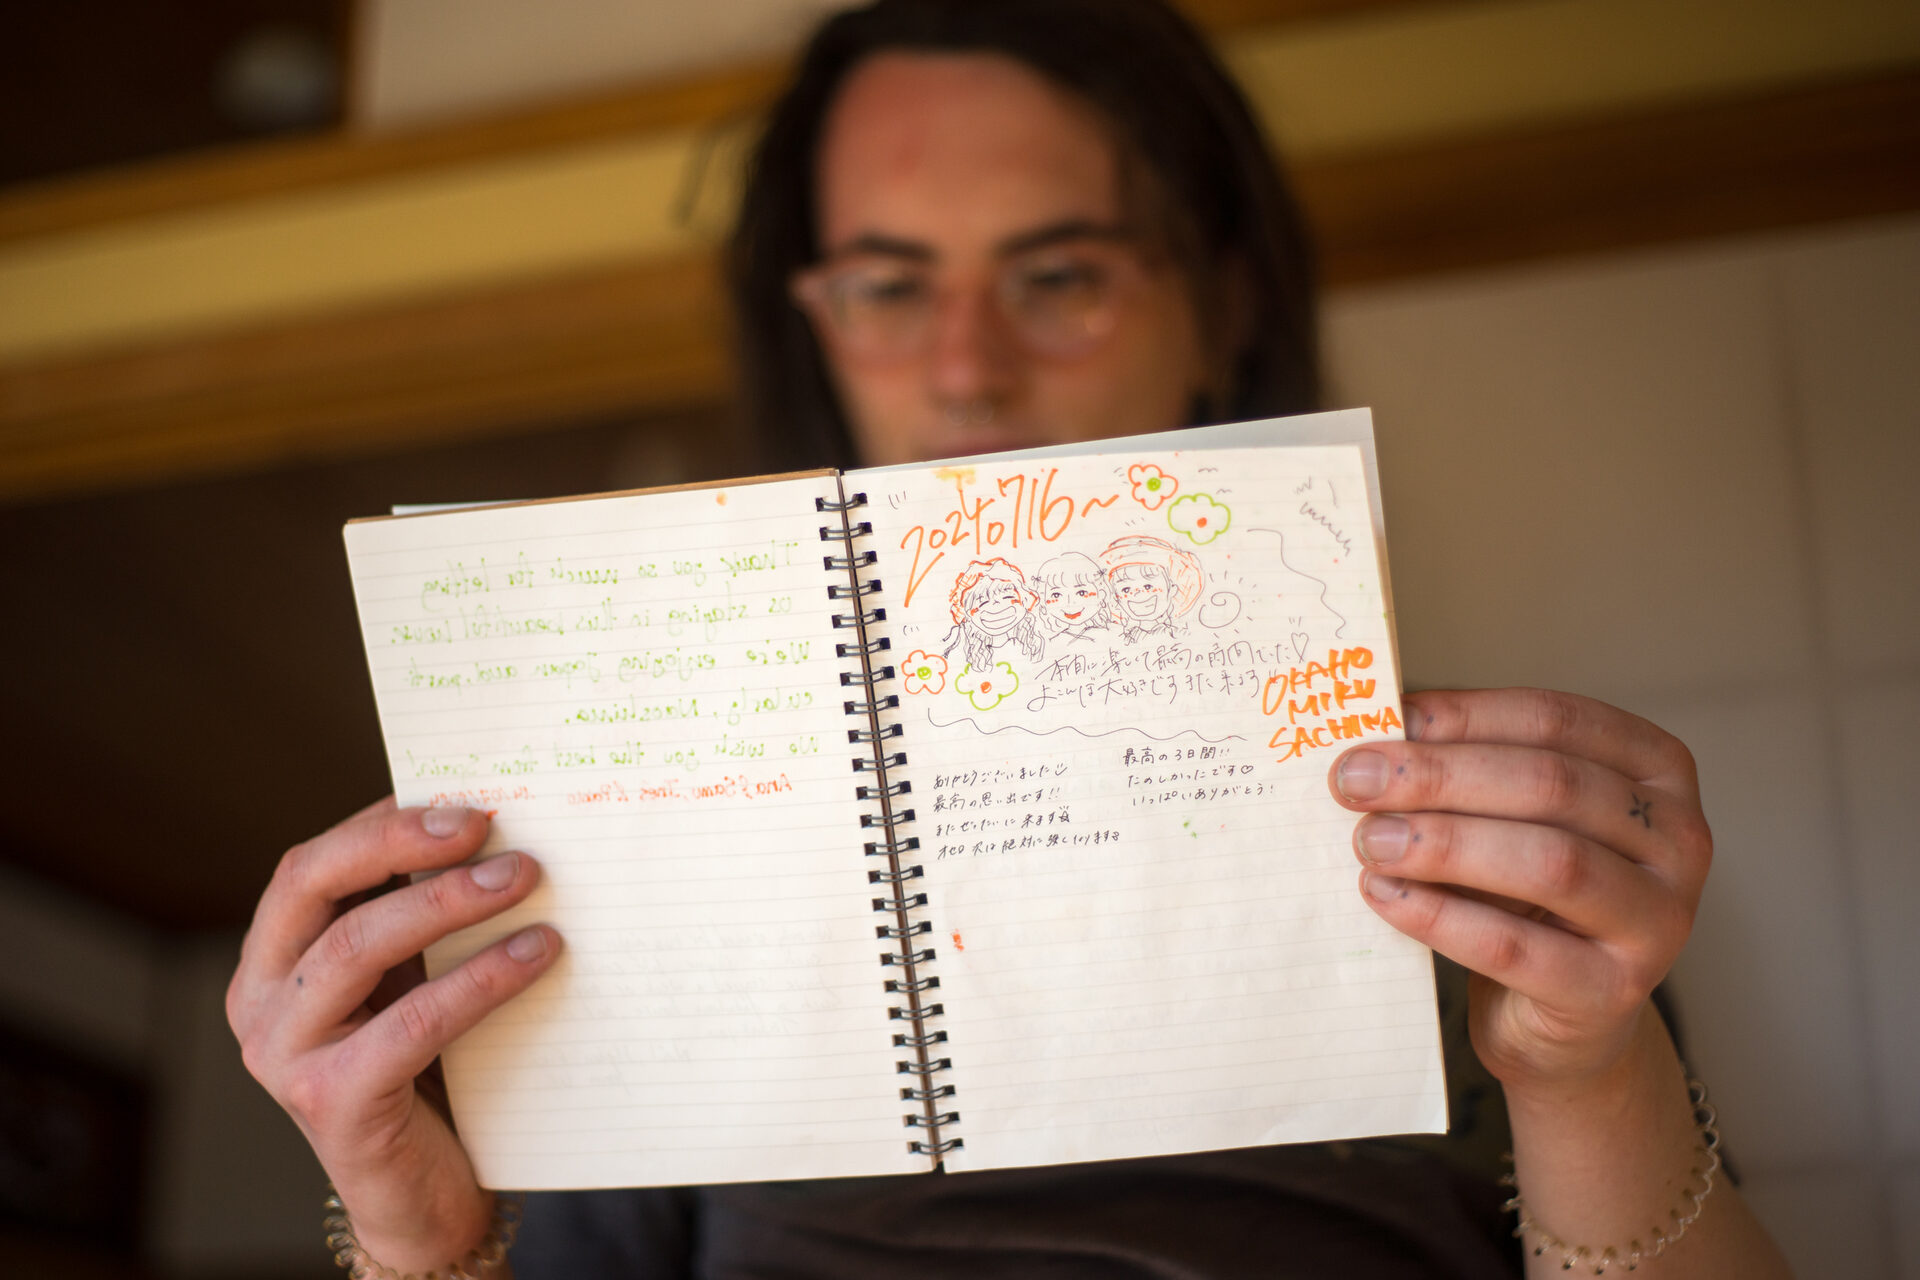 Thank you so much for letting
us staying in this beautiful house.
We're enjoying Japan and, parti-
cularly, Naoshima.
We wish you the best from Spain!
Ana, Samu, Inés & Pablo 14/07/2024
20240716~
本当に楽しくて最高の時間でした♡
よこんぼ大好きです また来ます
OKAHO
MIKU
SACHIKA
ありがとうございました
最高の思い出です!!
またぜったいに来ます
オセロ 次は絶対に強くなります
最高の3日間!!
たのしかったです♡
いっぱいありがとう!